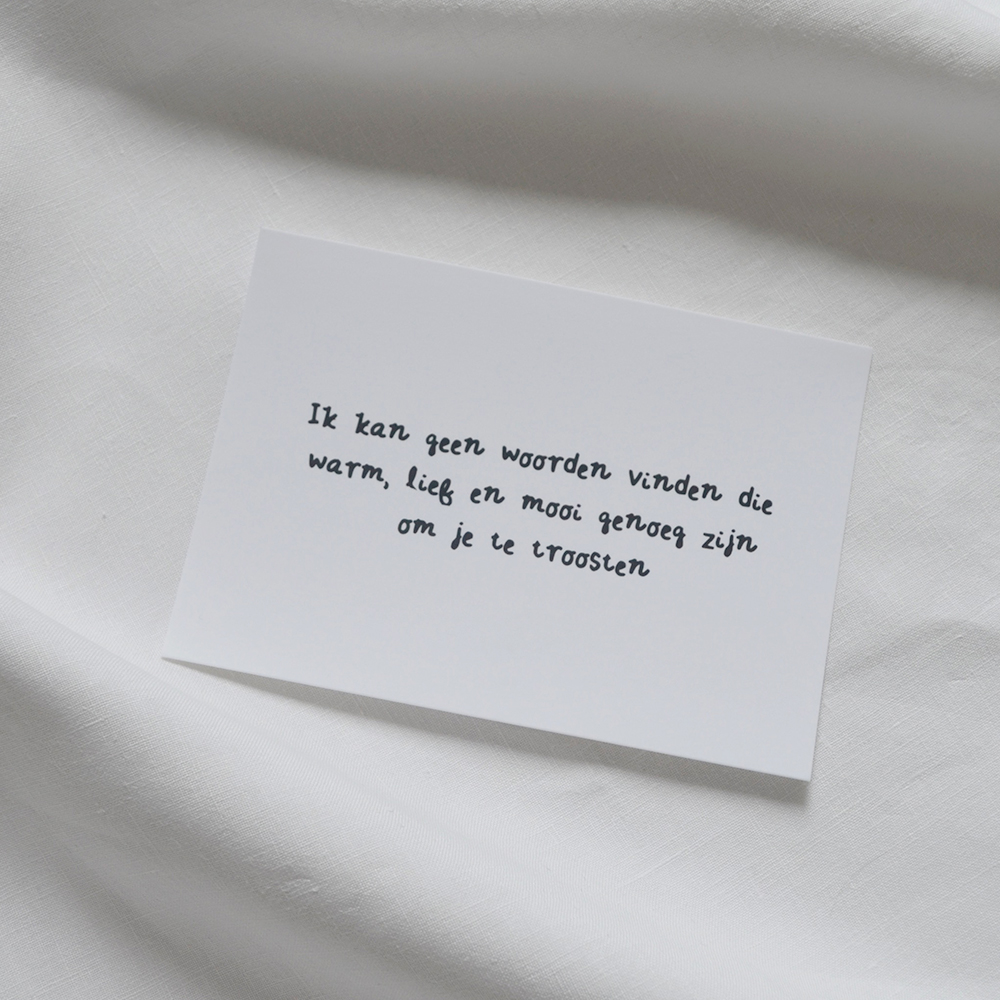 Ik kan geen woorden vinden die
warm, lief en mooi genoeg zijn
om je te troosten